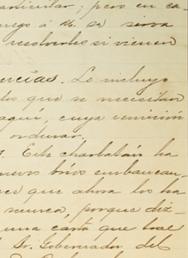 particular; pero en ca
ruego á U. se sirva
resolverlos si vienen
encias. Le incluyo
los que se necesitan
aquí, cuya remisión
ordenar.
Este charlatán ha
nuevos bríos embaucan
es que ahora los ha
nunca, porque diz
una carta que trae
Sr. Gobernador del